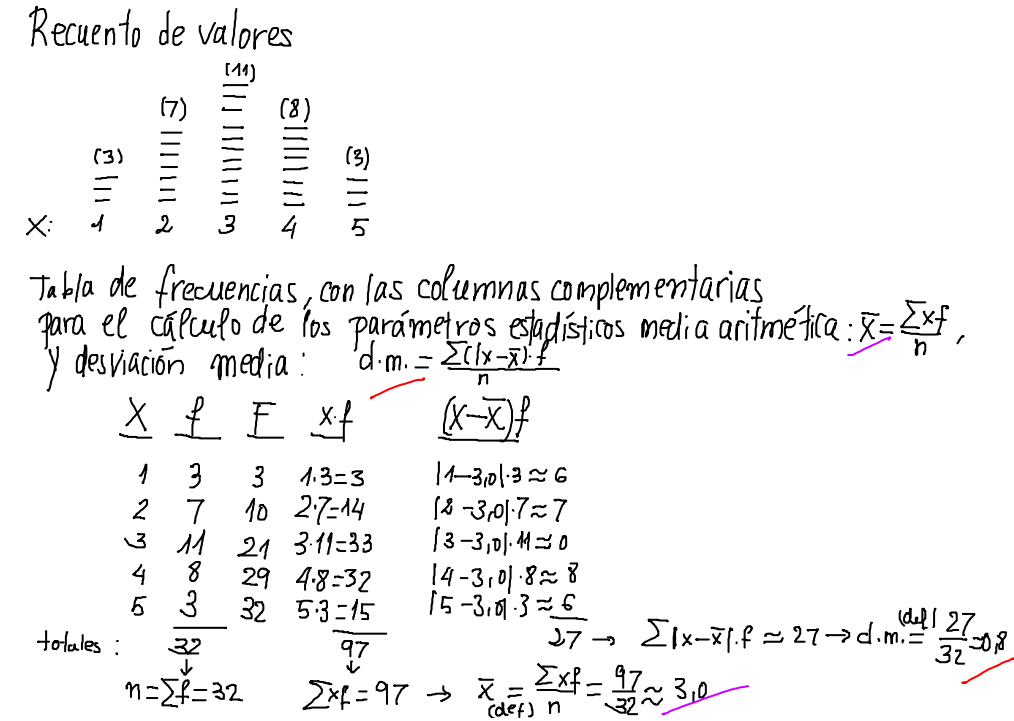 Recuento de valores
(11)
(7) (8)
(3) (3)
X: 1 2 3 4 5
Tabla de frecuencias, con las columnas complementarias
para el cálculo de los parámetros estadísticos media aritmética: x̄ = Σxf/n ,
y desviación media: d.m. = Σ(|x-x̄)·f/n
X f F x·f (X-X̄)f
1 3 3 1·3=3 |1-3,0|·3≈6
2 7 10 2·7=14 |2-3,0|·7≈7
3 11 21 3·11=33 |3-3,0|·11≈0
4 8 29 4·8=32 |4-3,0|·8≈8
5 3 32 5·3=15 |5-3,0|·3≈6
totales: 32 97 27 → Σ|x-x̄|·f ≈ 27 → d.m. = (def) 27/32 ≈0,8
n=Σf=32 Σxf=97 → x̄ = (def) Σxf/n = 97/32 ≈ 3,0